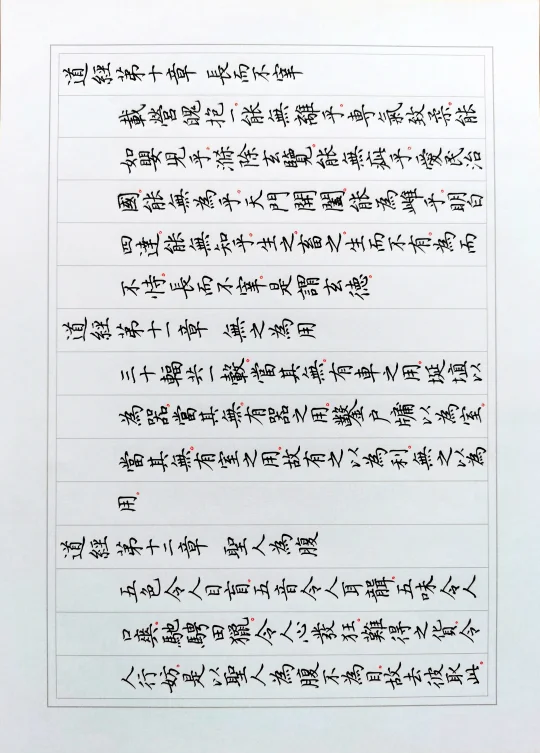 道經第十章 長而不宰
載營魄抱一。能無離乎。專氣致柔。能
如嬰兒乎。滌除玄覽。能無疵乎。愛民治
國。能無為乎。天門開闔。能為雌乎。明白
四達。能無知乎。生之。畜之。生而不有。為而
不恃。長而不宰。是謂玄德。
道經第十一章 無之為用
三十輻共一轂。當其無。有車之用。埏埴以
為器。當其無。有器之用。鑿戶牖以為室。
當其無。有室之用。故有之以為利。無之以為
用。
道經第十二章 聖人為腹
五色令人目盲。五音令人耳聾。五味令人
口爽。馳騁田獵。令人心發狂。難得之貨。令
人行妨。是以聖人為腹不為目。故去彼取此。